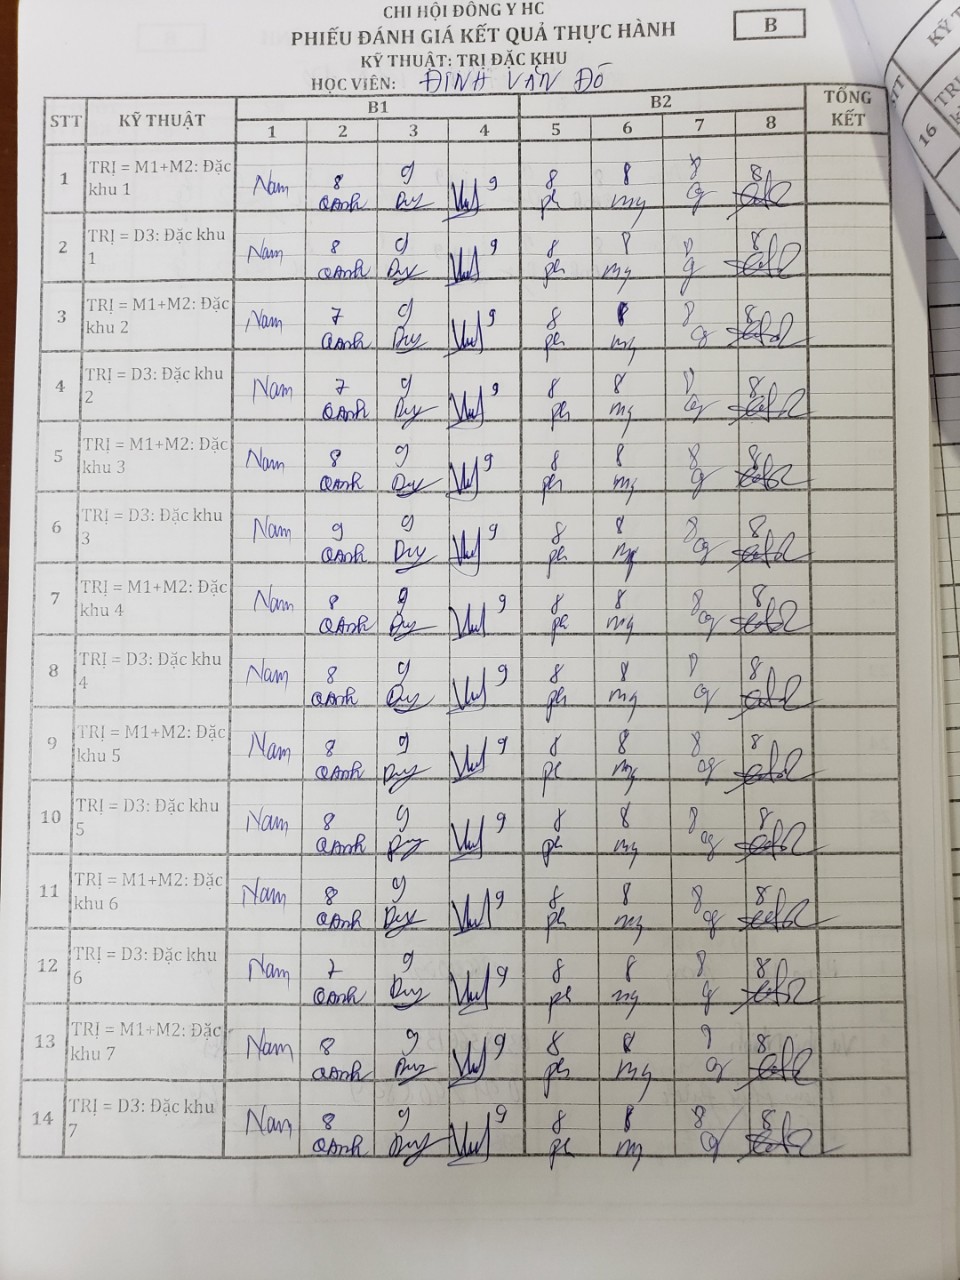 CHI HỘI ĐÔNG Y HC
B
PHIẾU ĐÁNH GIÁ KẾT QUẢ THỰC HÀNH
KỸ THUẬT: TRỊ ĐẶC KHU
HỌC VIÊN: ĐINH VĂN ĐÔ
STT KỸ THUẬT B1 B2 TỔNG KẾT
1 2 3 4 5 6 7 8
1 TRỊ = M1+M2: Đặc khu 1 Nam 8 QAnh 9 Duy 9 8 ph 8 mg 8 g 8
2 TRỊ = D3: Đặc khu 1 Nam 8 QAnh 9 Duy 9 8 ph 8 mg 8 g 8
3 TRỊ = M1+M2: Đặc khu 2 Nam 7 QAnh 9 Duy 9 8 ph 8 mg 8 g 8
4 TRỊ = D3: Đặc khu 2 Nam 7 QAnh 9 Duy 9 8 ph 8 mg 8 g 8
5 TRỊ = M1+M2: Đặc khu 3 Nam 8 QAnh 9 Duy 9 8 ph 8 mg 8 g 8
6 TRỊ = D3: Đặc khu 3 Nam 9 QAnh 9 Duy 9 8 ph 8 mg 8 g 8
7 TRỊ = M1+M2: Đặc khu 4 Nam 8 QAnh 9 Duy 9 8 ph 8 mg 8 g 8
8 TRỊ = D3: Đặc khu 4 Nam 8 QAnh 9 Duy 9 8 ph 8 mg 8 g 8
9 TRỊ = M1+M2: Đặc khu 5 Nam 8 QAnh 9 Duy 9 8 ph 8 mg 8 g 8
10 TRỊ = D3: Đặc khu 5 Nam 8 QAnh 9 Duy 9 8 ph 8 mg 8 g 8
11 TRỊ = M1+M2: Đặc khu 6 Nam 8 QAnh 9 Duy 9 8 ph 8 mg 8 g 8
12 TRỊ = D3: Đặc khu 6 Nam 7 QAnh 9 Duy 9 8 ph 8 mg 8 g 8
13 TRỊ = M1+M2: Đặc khu 7 Nam 8 QAnh 9 Duy 9 8 ph 8 mg g 8
14 TRỊ = D3: Đặc khu 7 Nam 8 QAnh 9 Duy 9 8 ph 8 mg 8 g 8
16